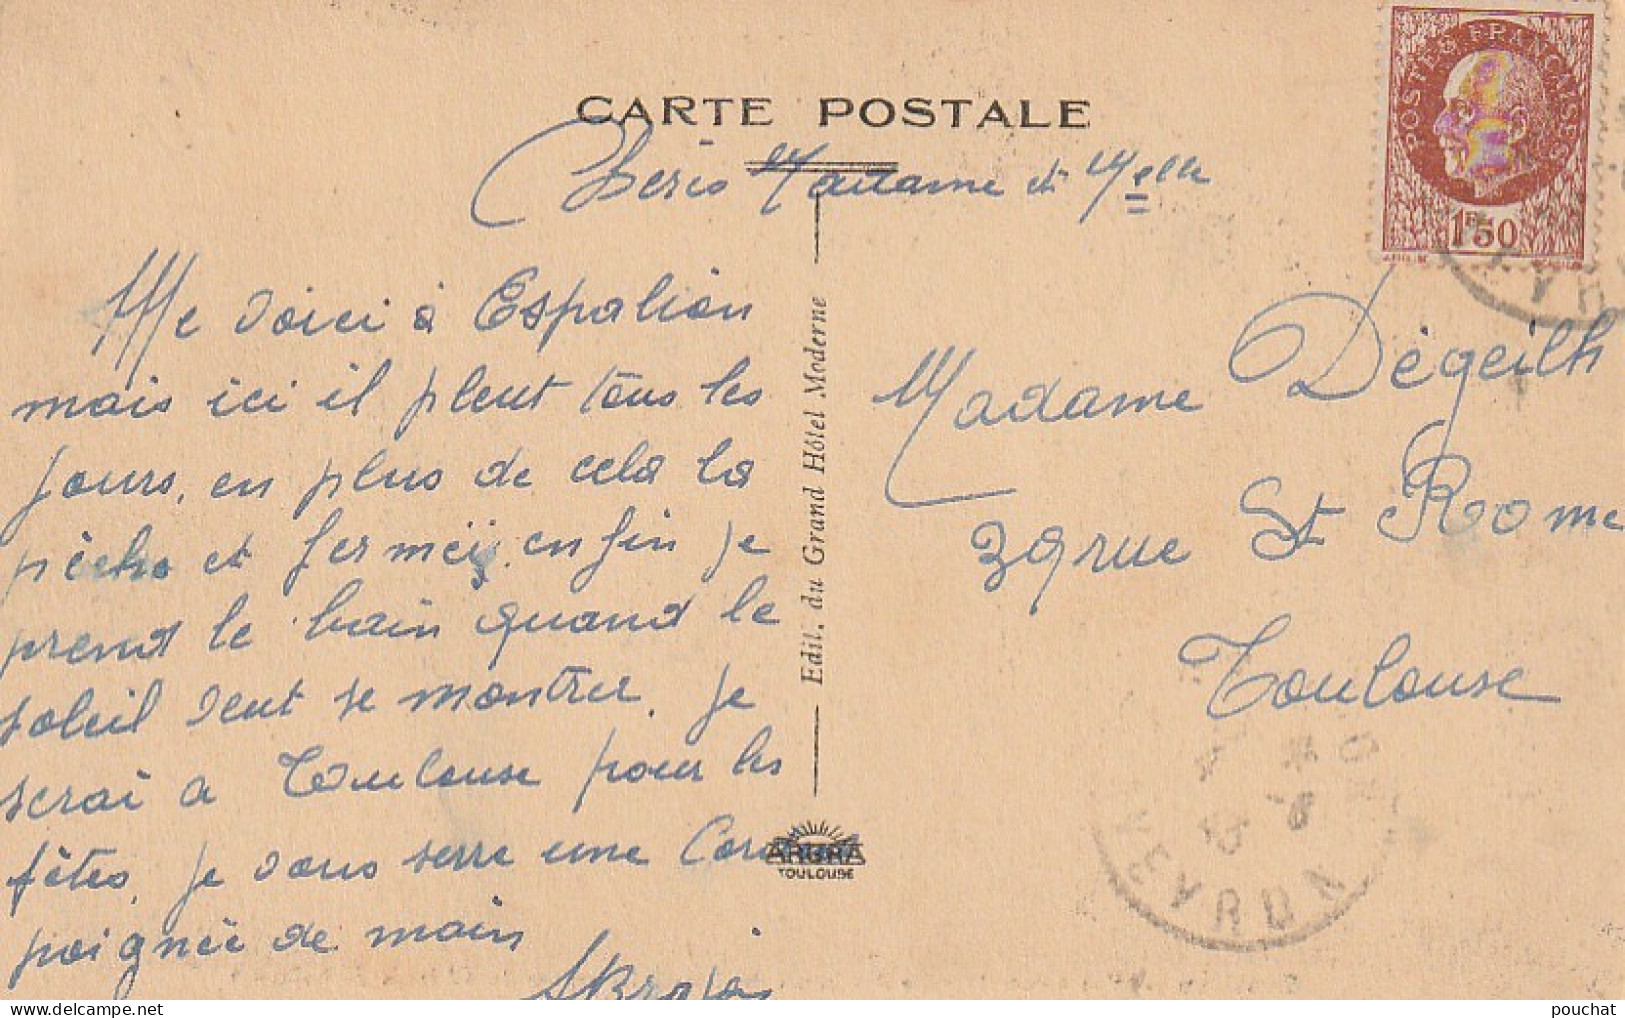 CARTE POSTALE
Chères Madame et Melle
Me voici à Espalion
mais ici il pleut tous les
jours, en plus de cela la
pèche et fermeï, enfin je
prend le bain quand le
soleil veut se montrer. je
serai a Toulouse pour les
fêtes, je vous serre une
poignée de main
Edit. du Grand Hôtel Moderne
ARURA
TOULOUSE
POSTES FRANÇAISES
1F50
Madame Dégeilh
39 rue St Rome
Toulouse
AVEYRON
pouchat